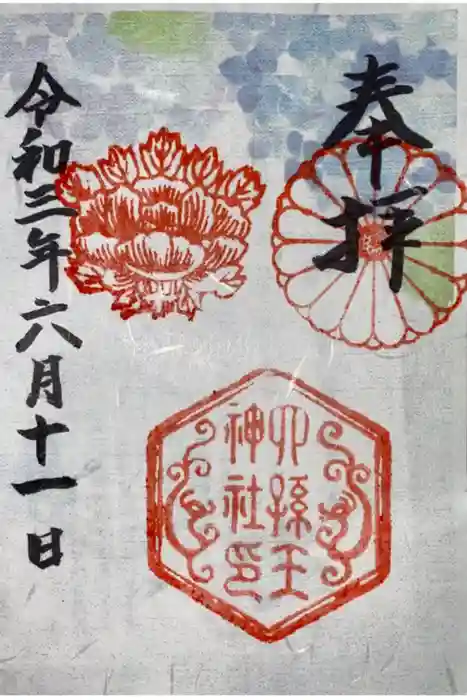 奉拝
六孫王
神社印
令和三年六月十一日